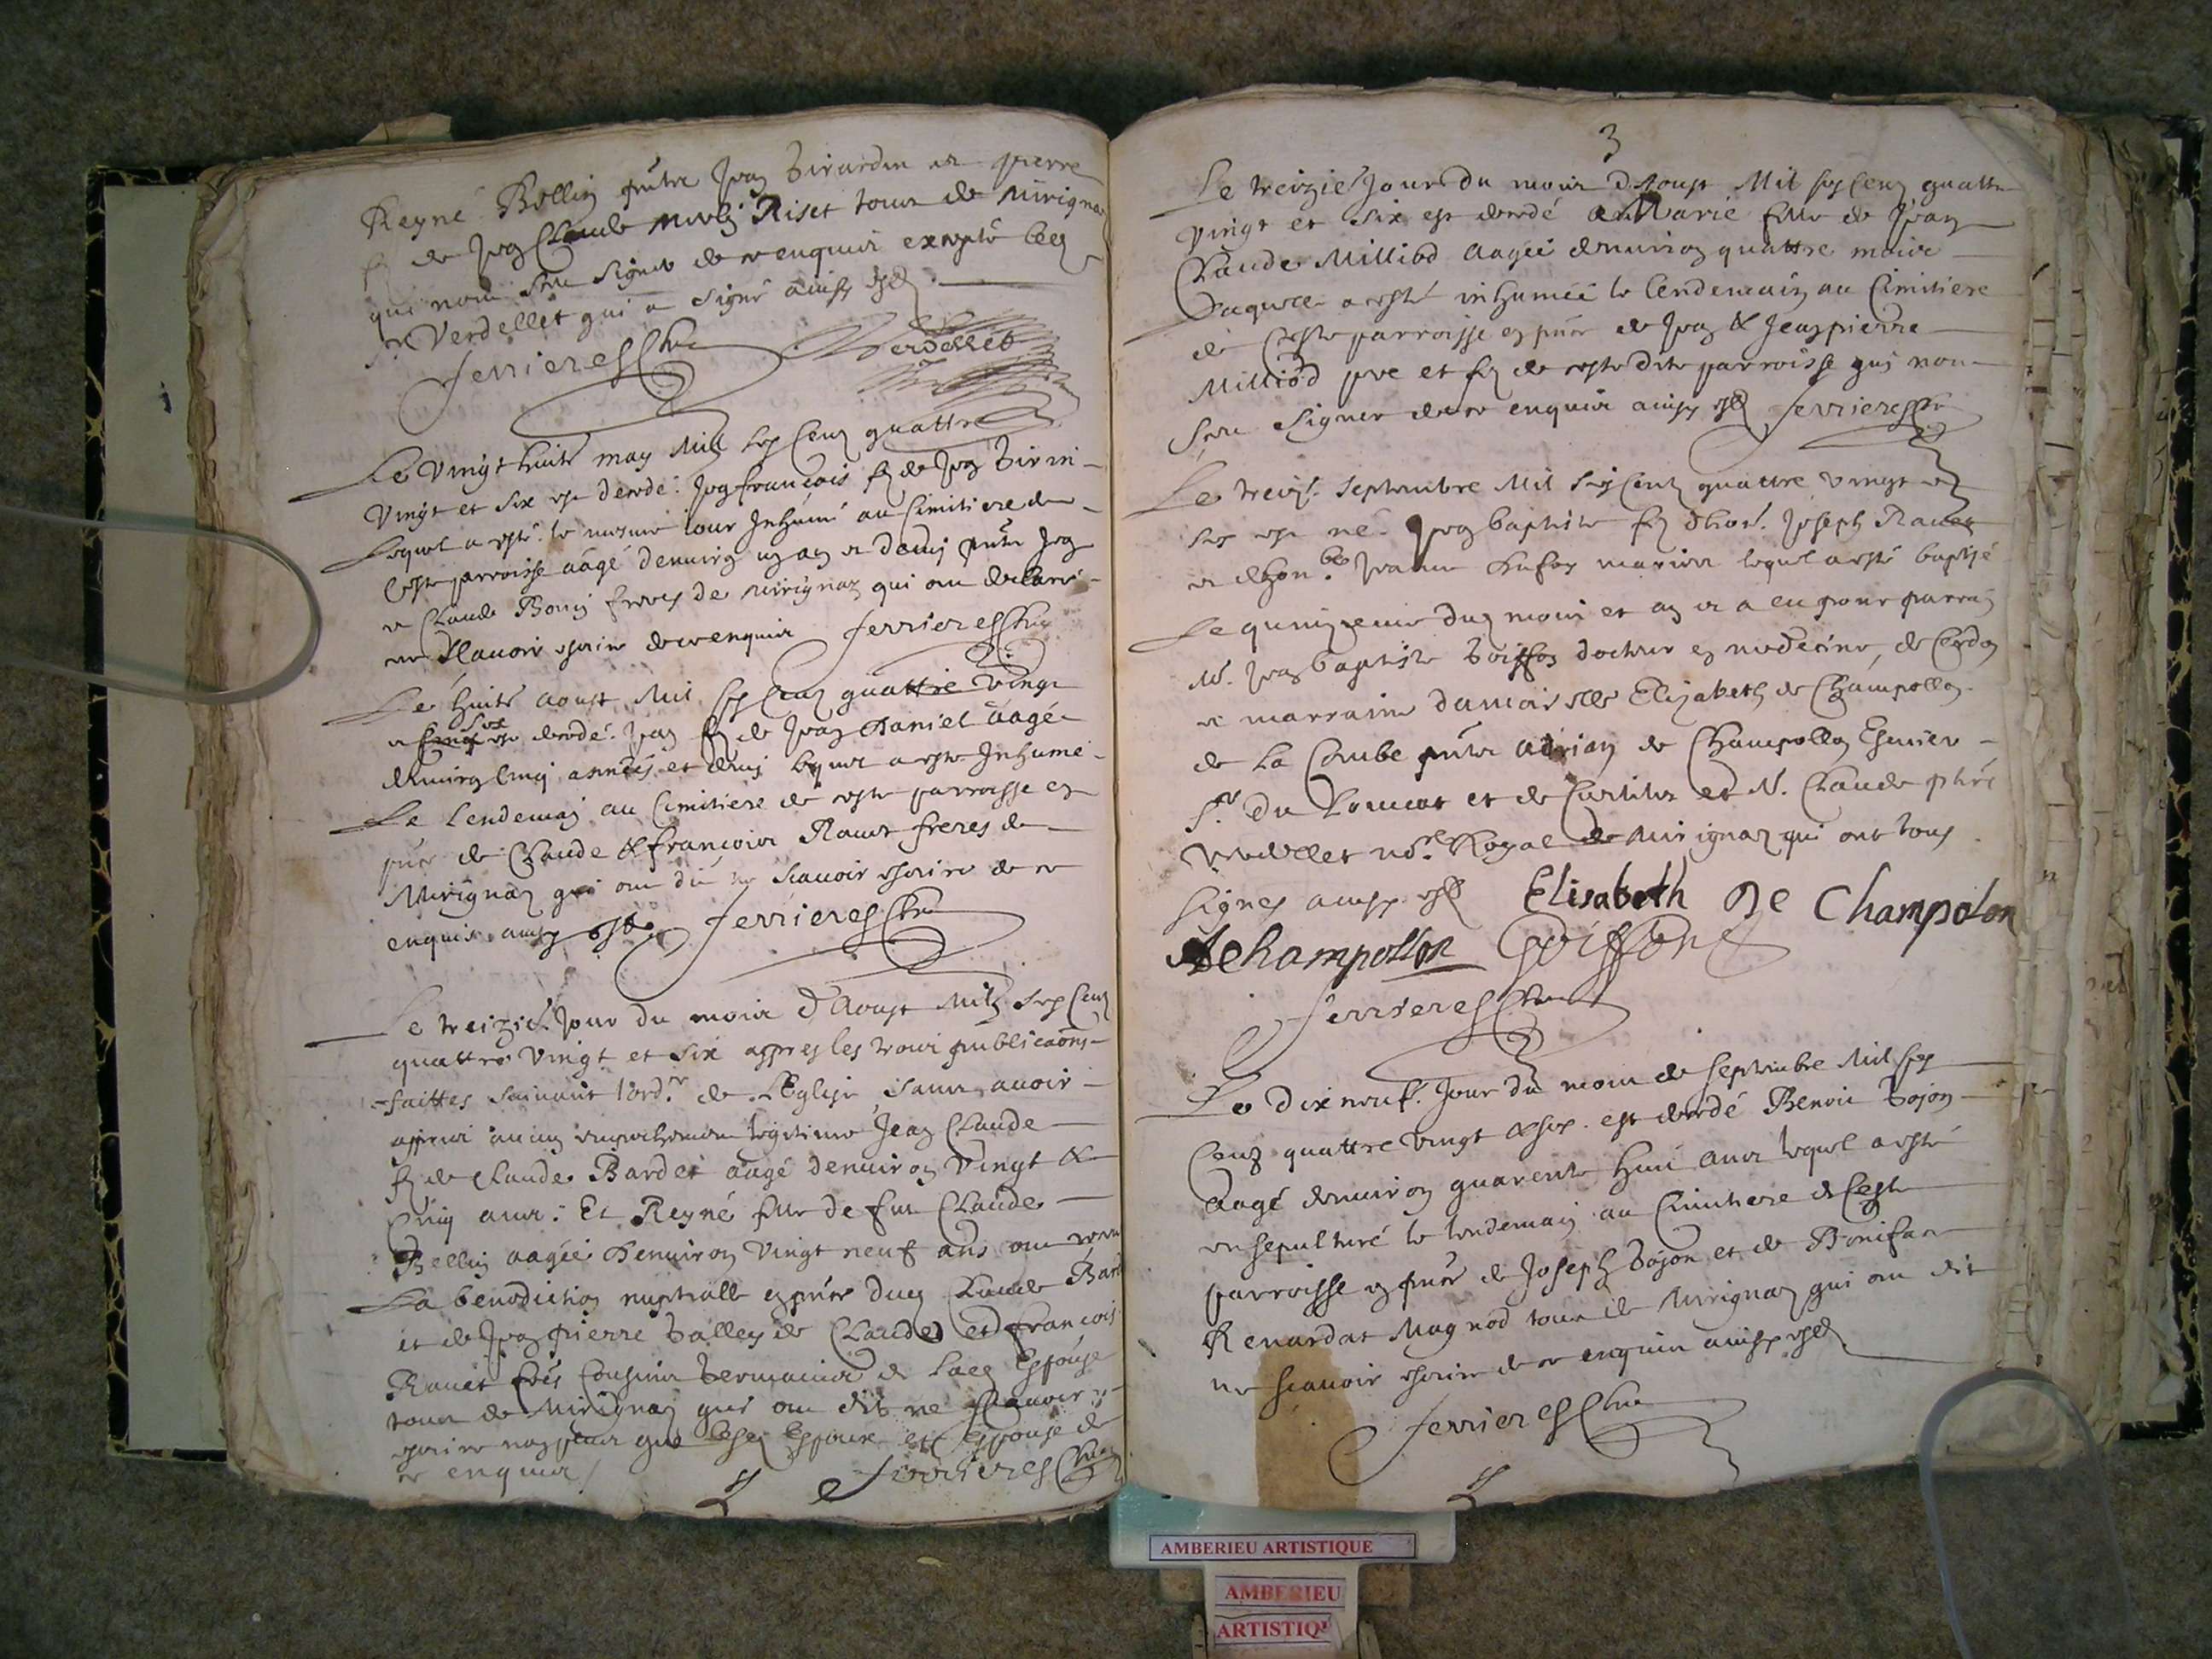 Reyné Bellin
fz de Jean Claude Riset tous de Mirignaz
qui nont sceu signer de ce enquis excepté led
Sr Verdellet qui a signé ainsy est
Ferrieres Cure Verdellet
Le vingt huits may Mil six Cens quattre
Vingt et six est decedé Jean françois fz de Jean
Lequel a esté le mesme jour Inhumé au Cimitiere de
Ceste parroisse aagé denviron un an et demy
et Claude Bonin freres de Mirignaz qui ont declaré
ne scavoir escrire de ce enquis Ferrieres Cure
Le huits aoust Mil six Cens quattre Vingt
et six est decedé Jean fz de Jean Daniel aagé
denviron Cinq années et demy lequel a esté Inhumé
Le Lendemain au Cimitiere de ceste parroisse en
pnce de Claude & francois Ravet freres de
Mirignaz qui ont dit ne scavoir escrire de ce
enquis ainsy est Ferrieres Cure
Le treizie Jour du mois d'Aoust Mil six Cens
quattre Vingt et six appres les trois publicaons
faittes suivant l'ord.r de L'Eglise sans avoir
appris aucun empechement legitime Jean Claude
fz de Claude Bardet aagé denviron Vingt &
Cinq ans Et Reyné fille de feu Claude
Bellin aagée Denviron Vingt neuf ans ont receu
La benediction nuptialle en pnce dud Claude Bard
et de Jean pierre de Claude et francois
Ravet Cousins Germains de lad Espouse
tous de Mirignaz qui ont dit ne scavoir
escrire non plus que lesd Espoux et Espouse de
ce enquis
Ferrieres Cure
3
Le treizie Jour du mois d'Aoust Mil six Cens quattre
Vingt et six est decedé Marie fille de Jean
Claude Milliod aagée denviron quattre mois
Laquelle a esté inhumée le lendemain au Cimitiere
de Ceste parroisse en pnce de Jean & Jean pierre
Milliod pere et fz de cestedite parroisse qui nont
sceu signer de ce enquis ainsy est Ferrieres Cure
Le treize Septembre Mil six Cens quattre vingt et
six est né Jean baptiste fz d'hon. Joseph Ravet
et d'hon.ble Jeanne mariez lequel a esté baptisé
Le quinzeme dud mois et an et a eu pour parrain
M. Jean baptiste Goiffon docteur en medecine, de Cerdon
et marraine damoiselle Elizabeth de Champollon
de La Combe Adrian de Champollon Escuier
Sr. Du et de et M. Claude
Verdellet no.re Royal de Mirignaz qui ont tous
signes ainsy est Elisabeth De Champolon
AChampollon Goiffon
Ferrieres Cure
Le dix neuf. Jour du mois de Septembre Mil six
Cens quattre Vingt & six est decedé Benoit Bojon
aagé denviron quarente huit ans lequel a esté
ensepulturé le lendemain au Cimitiere de Ceste
parroisse en pnce de Joseph Bojon et de Bonifa
Renardat Magnod tous de Mirignaz qui ont dit
ne scavoir escrire de ce enquis ainsy est
Ferrieres Cure
AMBERIEU ARTISTIQUE
AMBERIEU
ARTISTIQU